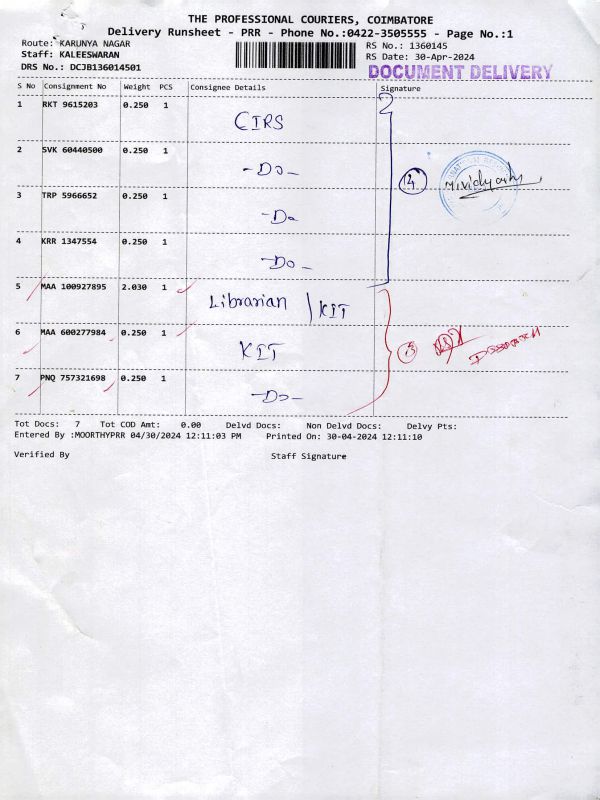 THE PROFESSIONAL COURIERS, COIMBATORE
Delivery Runsheet - PRR - Phone No.:0422-3505555 - Page No.:1
Route: KARUNYA NAGAR RS No.: 1360145
Staff: KALEESWARAN RS Date: 30-Apr-2024
DRS No.: DCJB136014501 DOCUMENT DELIVERY
S No Consignment No Weight PCS Consignee Details Signature
1 RKT 9615203 0.250 1 CIRS
2 SVK 60440500 0.250 1 -Do-
3 TRP 5966652 0.250 1 -Do
4 KRR 1347554 0.250 1 Do-
5 MAA 100927895 2.030 1 Librarian / KIT
6 MAA 600277984 0.250 1 KIT
7 PNQ 757321698 0.250 1 -Do-
4
3
Tot Docs: 7 Tot COD Amt: 0.00 Delvd Docs: Non Delvd Docs: Delvy Pts:
Entered By :MOORTHYPRR 04/30/2024 12:11:03 PM Printed On: 30-04-2024 12:11:10
Verified By Staff Signature